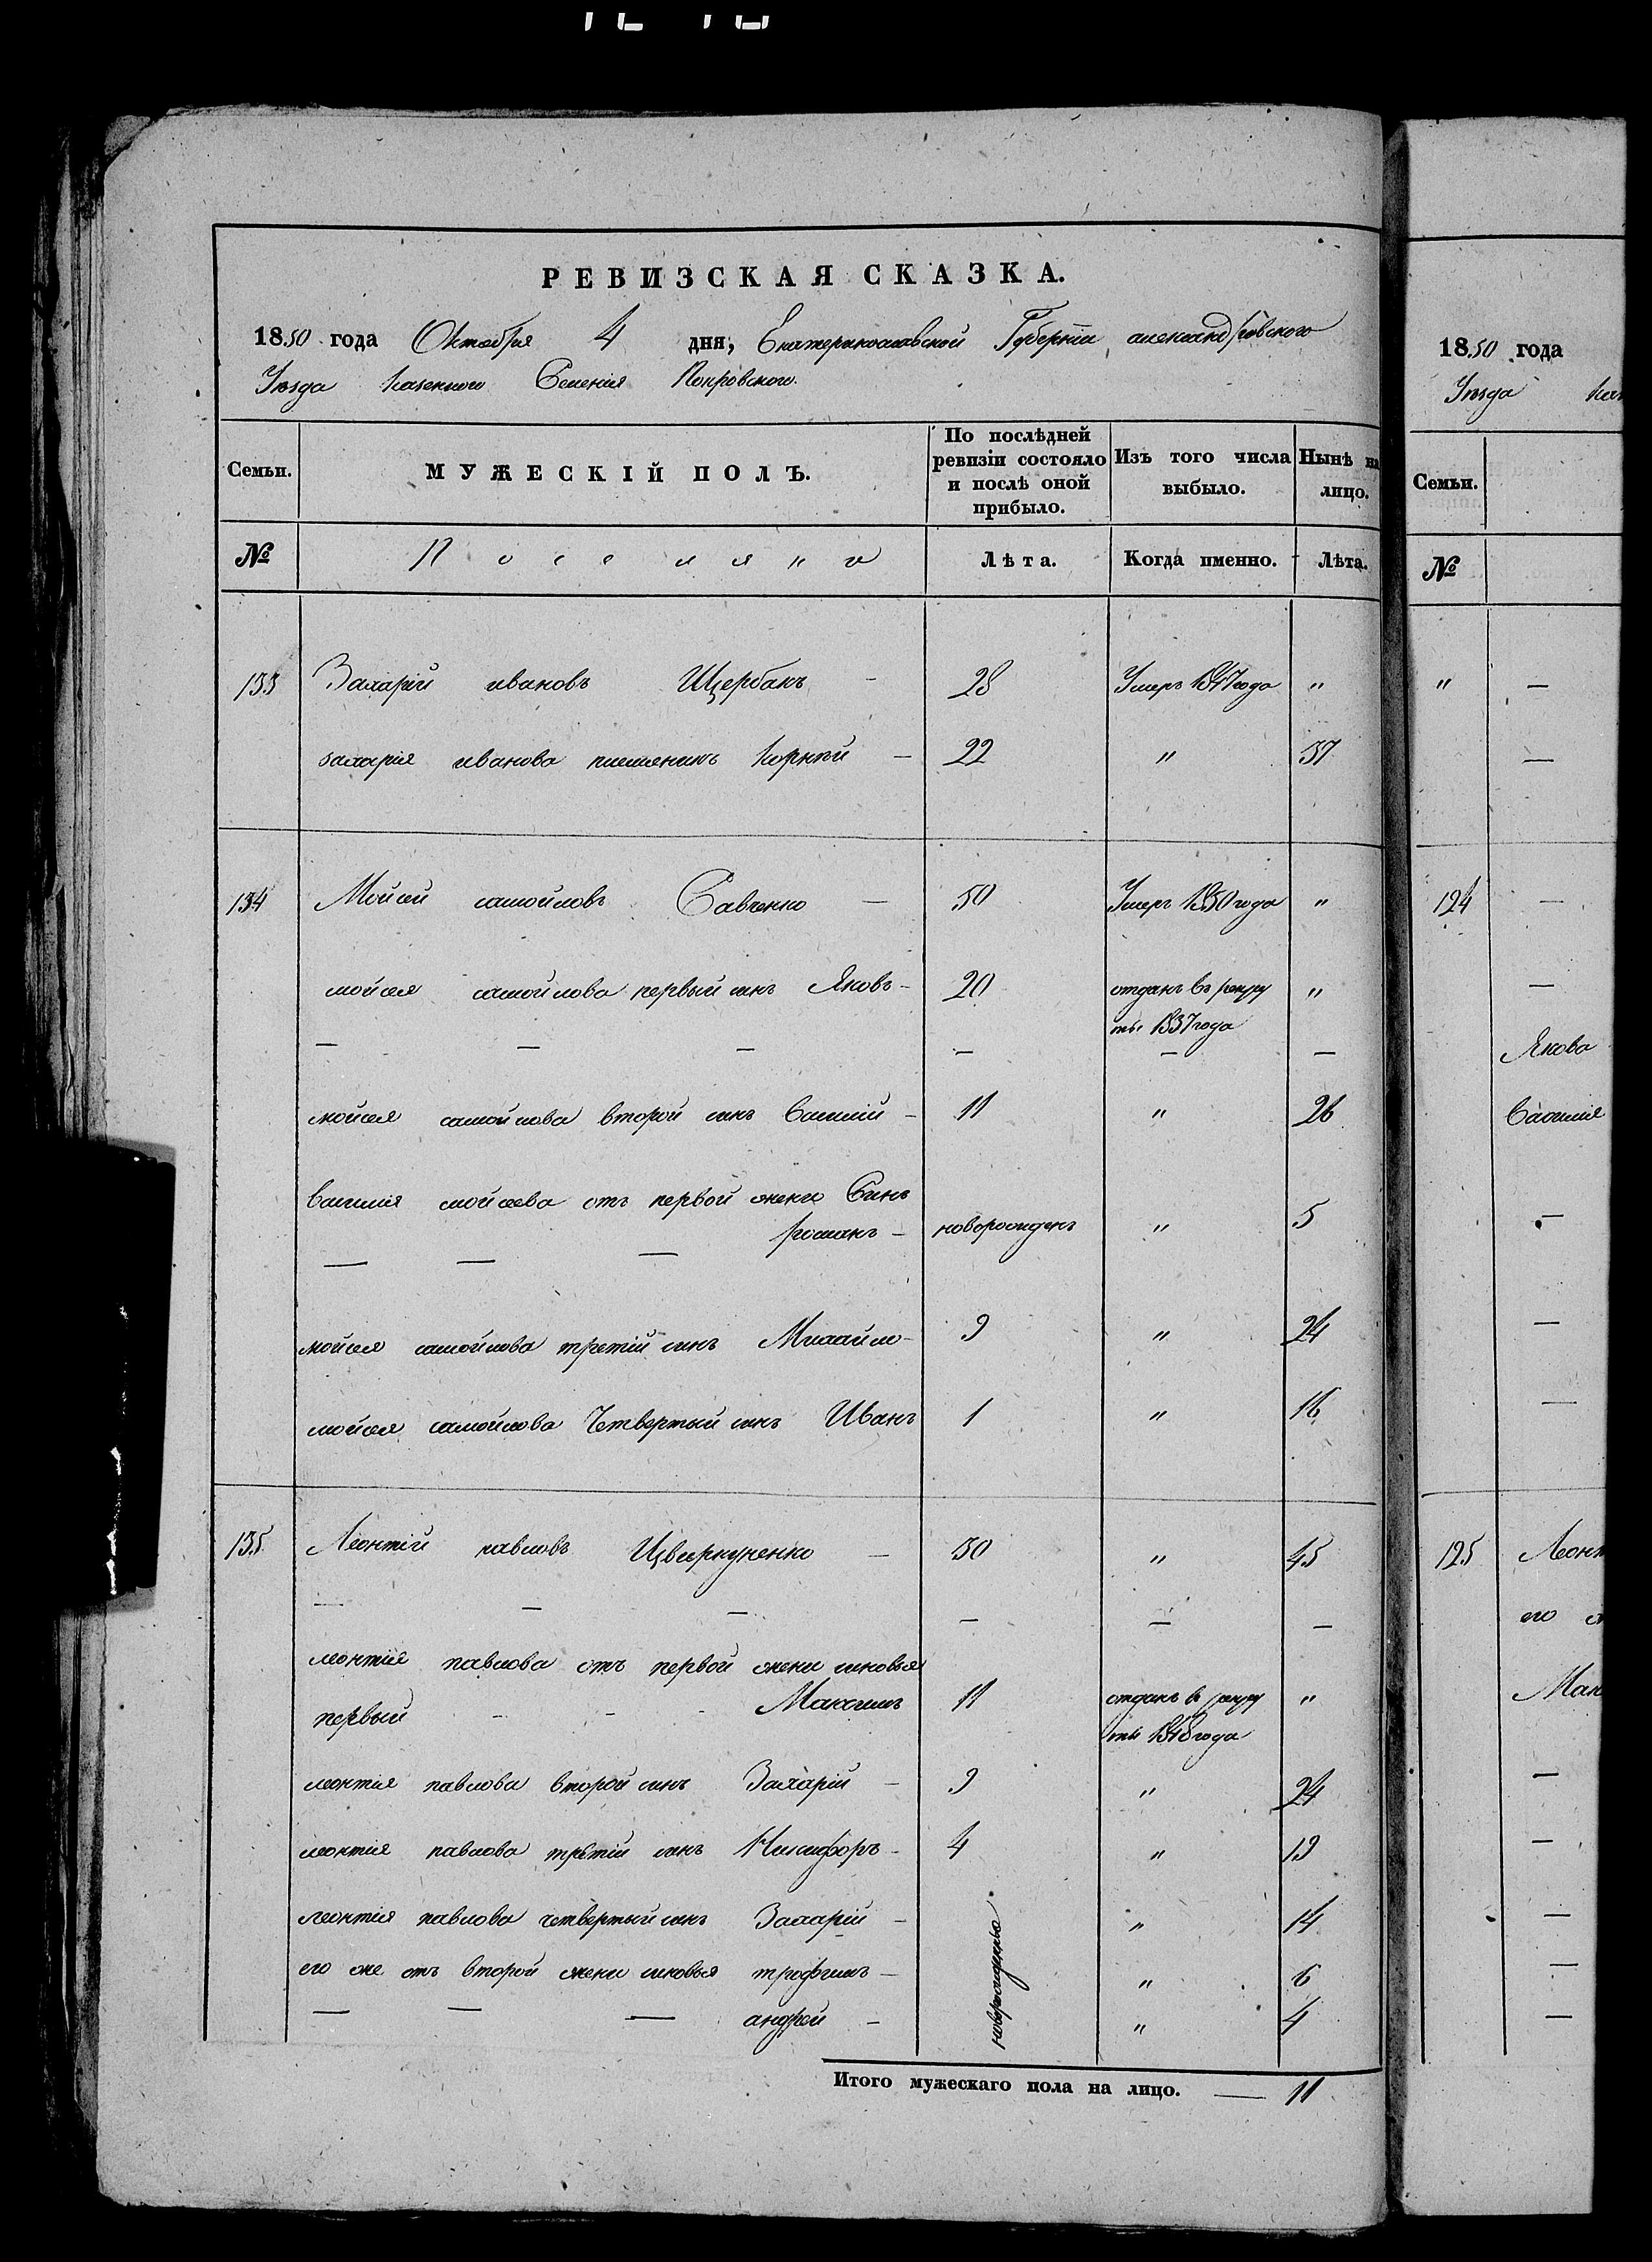 РЕВИЗСКАЯ СКАЗКА.
1850 года Октября 4 дня, Екатеринославской Губерніи, александровского
Уѣзда Казенного Селенія Покровского.
Семьи. МУЖЕСКІЙ ПОЛЪ. По послѣдней ревизіи состояло и послѣ оной прибыло. Изъ того числа выбыло. Нынѣ на лицо.
№ Поселянъ Лѣта. Когда именно. Лѣта.
133 Захарій ивановъ Щербакъ - 28 Умеръ 1847 года "
захарія иванова племяникъ Корнѣй - 22 " 37
134 Мойсей самойловъ Савченко - 50 Умеръ 1850 года "
мойсея самойлова первый синъ Яковъ - 20 отданъ въ рекру "
ты 1837 года
— — — — — —
мойсея самойлова второй синъ Василій - 11 " 26
василия мойсеева отъ первой жени Синъ
романъ - новорожденъ " 5
— — —
мойсея самойлова третій синъ Михайло - 9 " 24
мойсея самойлова Четвертый синъ Иванъ 1 " 16
135 Леонтій павловъ Цвиркуненко - 30 " 45
— — — — — —
леонтія павлова отъ первой жени синовья
первый - - - Максимъ 11 отданъ в рекру "
ты 1848 года
леонтия павлова второй синъ Захарій - 9 " 24
леонтія павлова третій синъ Никифоръ - 4 " 19
леонтія павлова четвертый синъ Захарій - " 14
новорожденные
его же отъ второй жени синовья трофимъ - " 6
— — — андрей - " 4
Итого мужескаго пола на лицо. — 11
1850 года
Уѣзда
Семьи.
№
" —
—
124 —
—
Якова
Василія
—
—
—
125
его
—
—
—
—
—